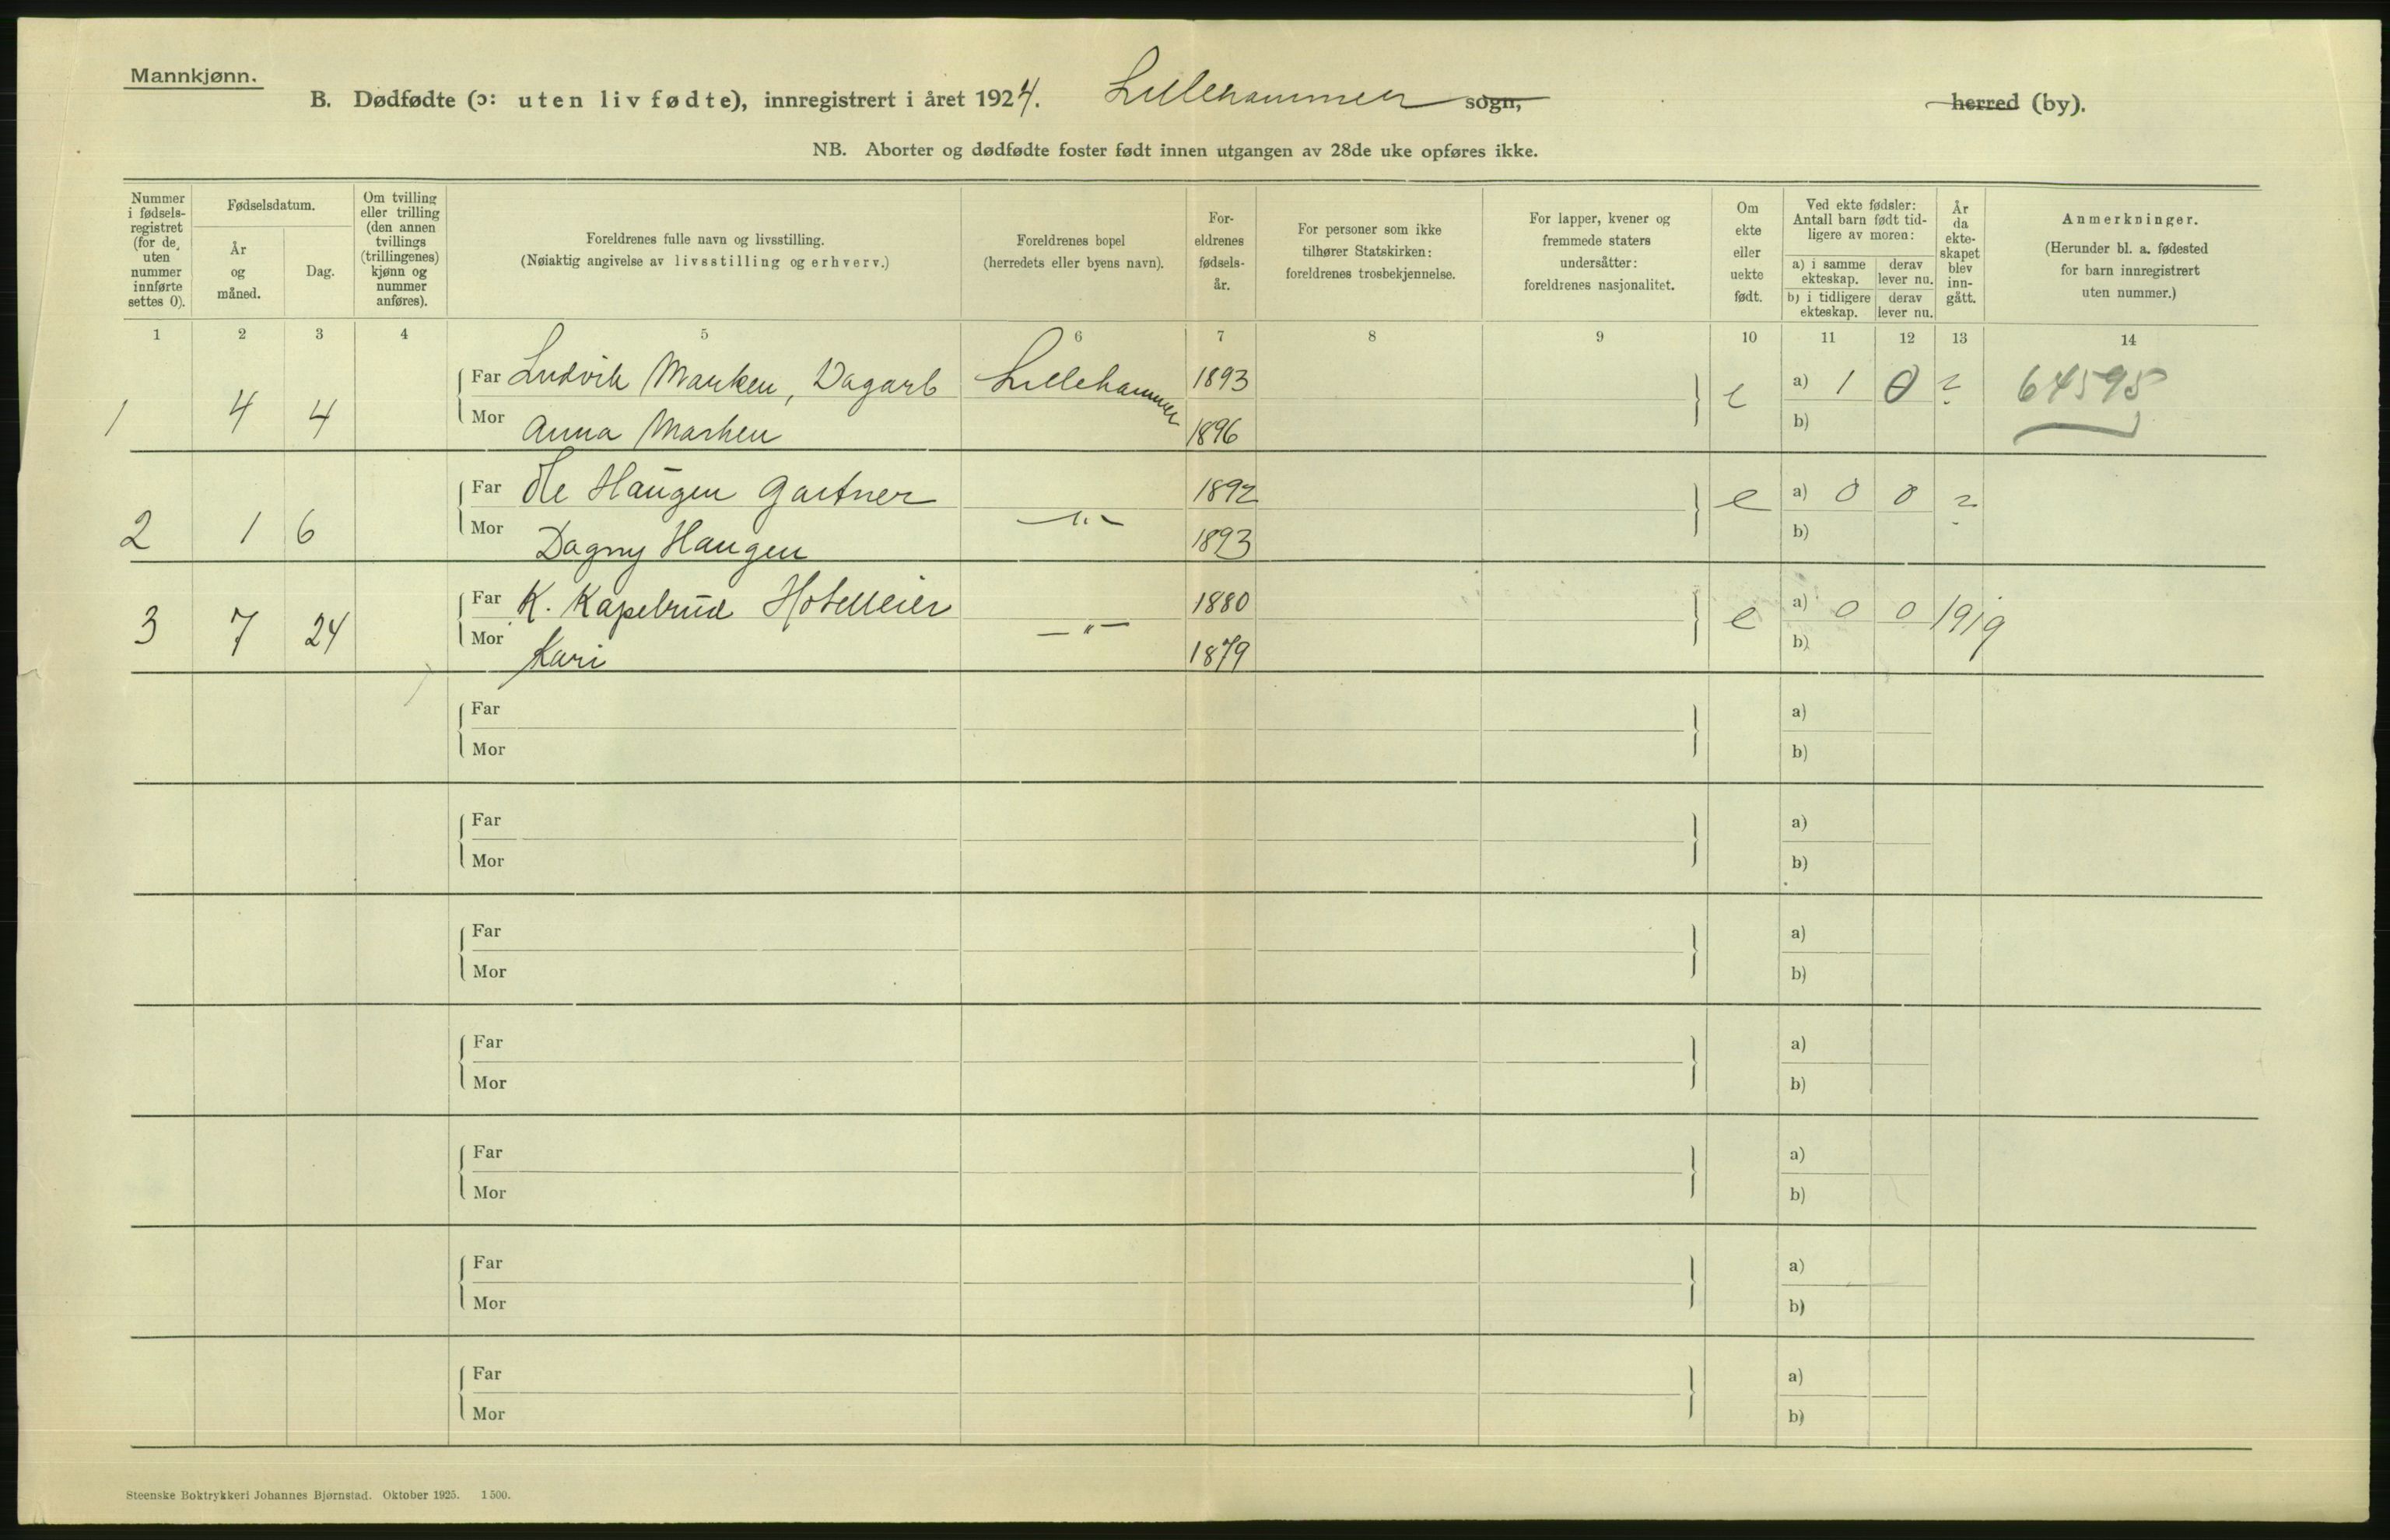 Mannkjønn.
B. Dødfødte (ɔ: uten liv fødte), innregistrert i året 1924. Lillehammer sogn, herred (by).
NB. Aborter og dødfødte foster født innen utgangen av 28de uke opføres ikke.
Nummer i fødselsregistret (for de uten nummer innførte settes 0).
Fødselsdatum.
År og måned.
Dag.
Om tvilling eller trilling (den annen tvillings (trillingenes) kjønn og nummer anføres).
Foreldrenes fulle navn og livsstilling.
(Nøiaktig angivelse av livsstilling og erhverv.)
Foreldrenes bopel
(herredets eller byens navn).
Foreldrenes fødselsår.
For personer som ikke tilhører Statskirken: foreldrenes trosbekjennelse.
For lapper, kvener og fremmede staters undersåtter: foreldrenes nasjonalitet.
Om ekte eller uekte født.
Ved ekte fødsler: Antall barn født tidligere av moren:
a) i samme ekteskap. derav lever nu.
b) i tidligere ekteskap. derav lever nu.
År da ekteskapet blev inngått.
Anmerkninger.
(Herunder bl. a. fødested for barn innregistrert uten nummer.)
1 2 3 4 5 6 7 8 9 10 11 12 13 14
1 4 4 Far Ludvik Marken, Dagarb Lillehammer 1893 e a) 1 0 ? 64595
Mor Anna Marken 1896 b)
2 1 6 Far Ole Haugen Gartner —"— 1892 e a) 0 0 ?
Mor Dagny Haugen 1893 b)
3 7 24 Far K. Kapelrud Hotelleier —"— 1880 e a) 0 0 1919
Mor Kari 1879 b)
Far a)
Mor b)
Far a)
Mor b)
Far a)
Mor b)
Far a)
Mor b)
Far a)
Mor b)
Far a)
Mor b)
Far a)
Mor b)
Steenske Boktrykkeri Johannes Bjørnstad. Oktober 1925. 1500.